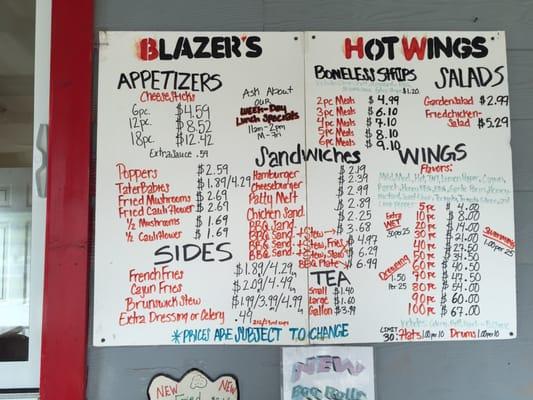 BLAZER'S
HOT WINGS
APPETIZERS
Cheese Sticks
6pc $4.59
12pc $8.52
18pc $12.42
Extra Sauce .59
Ask About
our
Week-Day
Lunch Specials
11am-2pm
M-Fri
Poppers $2.59
Tater Babies $1.89/4.29
Fried Mushrooms $2.69
Fried Cauliflower $2.69
½ Mushrooms $1.69
½ Cauliflower $1.69
SIDES
French Fries $1.89/4.29
Cajun Fries $2.09/4.49
Brunswick Stew $1.99/3.99/4.99
Extra Dressing or Celery .49
Sandwiches
Hamburger $2.19
Cheeseburger $2.39
Patty Melt $2.99
Chicken Sand. $2.89
BBQ Sand. $2.25
BBQ Sand. + Stew $3.68
BBQ Sand. + Stew, Fries $4.97
BBQ Sand. + Stew, Slaw $6.29
BBQ Plate $6.99
TEA
Small $1.40
Large $1.60
Gallon $3.99
*PRICES ARE SUBJECT TO CHANGE
BONELESS STRIPS
2pc Meals $4.99
3pc Meals $6.10
4pc Meals $7.10
5pc Meals $8.10
6pc Meals $9.10
SALADS
Garden Salad $2.97
Fried chicken-
Salad $5.29
WINGS
Flavors:
5 pc $4.00
10 pc $8.00
20 pc
30 pc
40 pc
50 pc
60 pc
70 pc
80 pc
90 pc $60.00
100 pc $67.00
Extra
WET
50 per 25
Dressing
1.50
Per 25
1.00 per 25
LIMIT
30: Flats 1.00 per 10 Drums 1.00 per 10
NEW NEW
Fried
NEW
BBQ Rolls